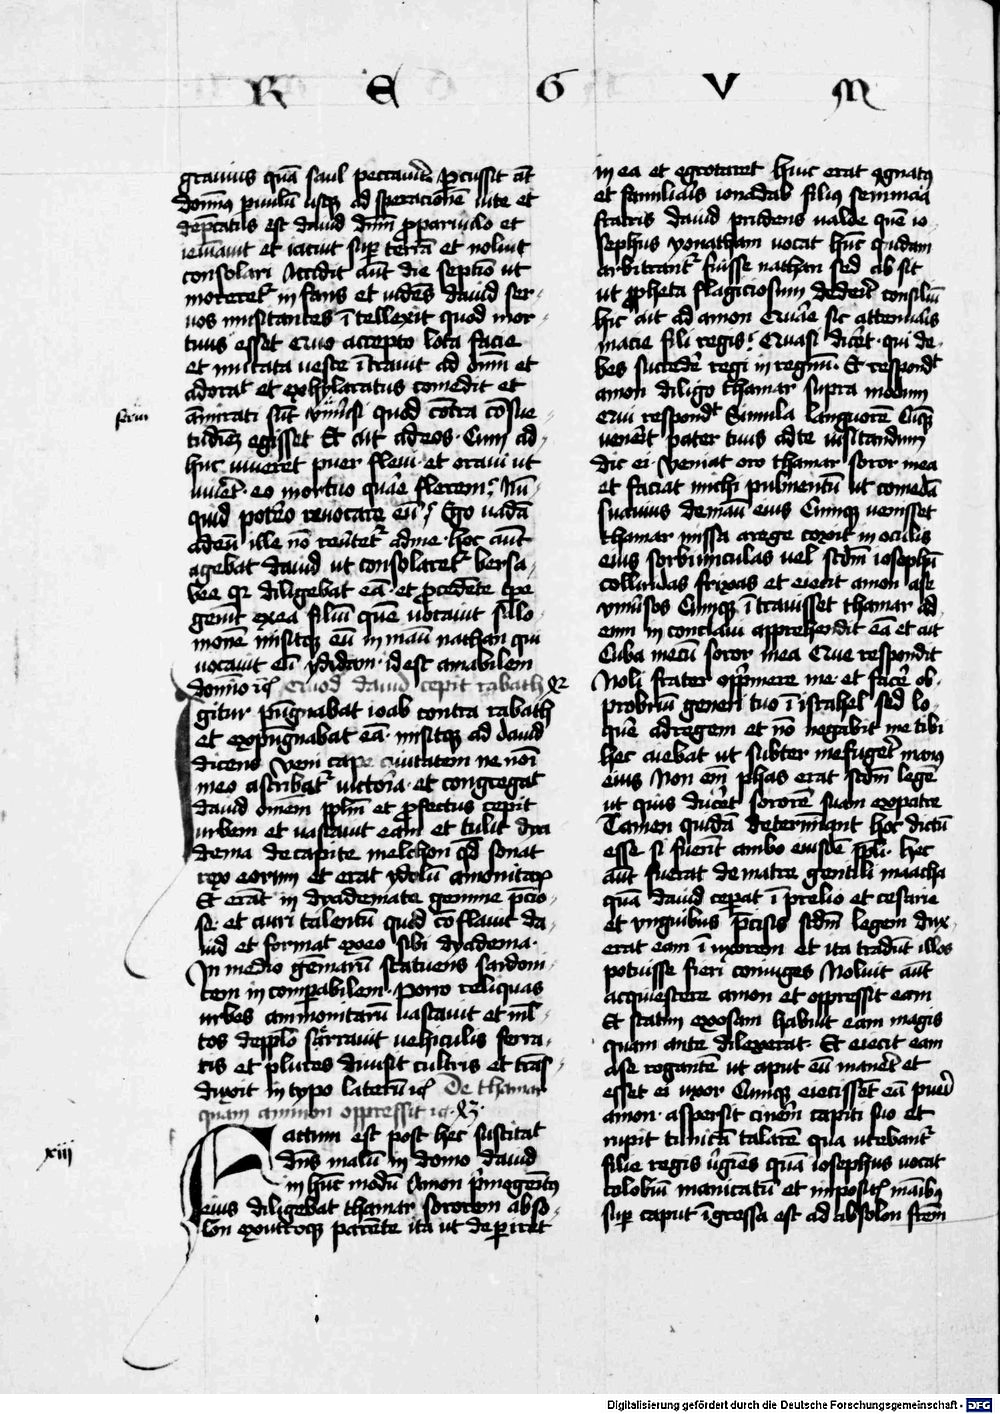 R E G V M
grauius quā saul peccauit? Percussit aūt
dominus puulū usque ad speracionē uite et
depcatus est dauid dnm̄ pro paruulo et
ieiunauit et iacuit sup terrā et noluit
consolari Accidit aūt die septīo ut
moreretr infans et uidēs dauid ser-
uos musitantes ītellexit quod mor-
tuus esset Quo accepto lota facie
et mutata ueste ītrauit ad dnm̄ et
adorat et exhylaratus comedit et
feriu
āmirati sūt vniūsi quod cōtra cōsue-
tudīez egisset Et ait ad eos. Cum ad-
huc uiueret puer fleui. et oraui ut
uiuēt. eo mortuo quāe flerem? Nū-
quid potēo reuocare eū? Ego uadā
ad eū ille nō reūtetr ad me. hoc aūt
agebat dauid ut consolaretr bersa-
bee qr diligebat eā. et procedēte tpe
genuit ex ea filiū quē uocauit salo-
monē misitque eū in manu nathan qui
uocauit eū ydidan. id est amabilem
domino Quod dauid cepit rabath
gitur pūgnabat ioab contra rabath
et expugnabat eā. misitque ad dauid
dicens veni cape ciuitatem ne noīi
meo ascribatr uictoria. et congregat
dauid omēm pplm̄ et profectus cepit
urbem et uastauit eam et tulit dya
dema de capite melchon qd sonat
rex eorum et erat ydolū amonitarum
Et erāt in dyademate gemme pcio-
se. et auri talentū quod cōflauit da-
uid et format ex eo sibi dyadema.
In medio gēmarū statuens sardoni-
cem incomparabilem. Porro reliquas
urbes ammonitarū uastauit et ml-
tos de pplo sarrauit uehiculis ferra-
tis et plures diuisit cultris et trās-
duxit in typo laterū De thamar
quam ammon oppressit
xiii
actum est post hec suscitat
dns malū in domo dauid
in hūc modū Amon primogenitus
eius diligebat thamar sororem abso-
lon ex utroque parēte ita ut deperiret
in ea et egrotaret huic erat cognatus
et familiaris ionadab filius semmaa
fratris dauid prudens ualde quē io-
sephus yonatham uocat hūc quidam
arbitrantr fuisse nathan sed absit
ut propheta flagiciosum dederit consiliū
hic ait ad amon Quare sic attenuaris
macie fili regis? Quasi dicēt. qui de-
bes succedere regi in regnū. Et respondt
amon diligo thamar supra modum
Cui respondt Simula languorē Cūque
uenerit pater tuus ad te uisitandum
dic ei. veniat oro thamar soror mea
et faciat michi pulmentū ut comedā
suauius de manu eius Cumque uenisset
thamar missa a rege coxit in oculis
eius sorbiunculas uel scdm̄ iosephū
colliridas frixas et eiecit amon a se
vniūsos Cumque ītrauisset thamar ad
eum in conclaui apprehendit eā et ait
Cuba mecū soror mea Que respondit
Noli frater opprimere me. et facere ob-
probriū generi tuo ī israhel sed lo-
quere ad regem et nō negabit me tibi
hec aiebat ut subterfugeret manus
eius Non em̄ phas erat scdm̄ legē
ut quis duceret sororē suam ex patre
Tamen quidā determinant hoc dictū
esse si fuerīt ambo eiusdē ppli. hec
aūt fuerat de matre gentili maacha
quā dauid ceperat ī prelio et cesarie
et vnguibus precisis scdm̄ legem dux-
erat eam ī uxorem et ita tradūt illos
potuisse fieri coniuges Noluit aūt
acquiescere amon et oppressit eam
Et statim exosam habuit eam magis
quam ante dilexerat. Et eiecit eam
a se rogantē ut aput eū maneret et
esset ei uxor Cumque eiecissēt eā pueri
amon. aspersit cinerem capiti suo et
rupit tunicā talarē qua utebantr
filie regis uirgīes quā iosephus uocat
colobiū manicatū et impositis manibus
sup caput īgressa est ad absolon frēm
Digitalisierung gefördert durch die Deutsche Forschungsgemeinschaft - DFG